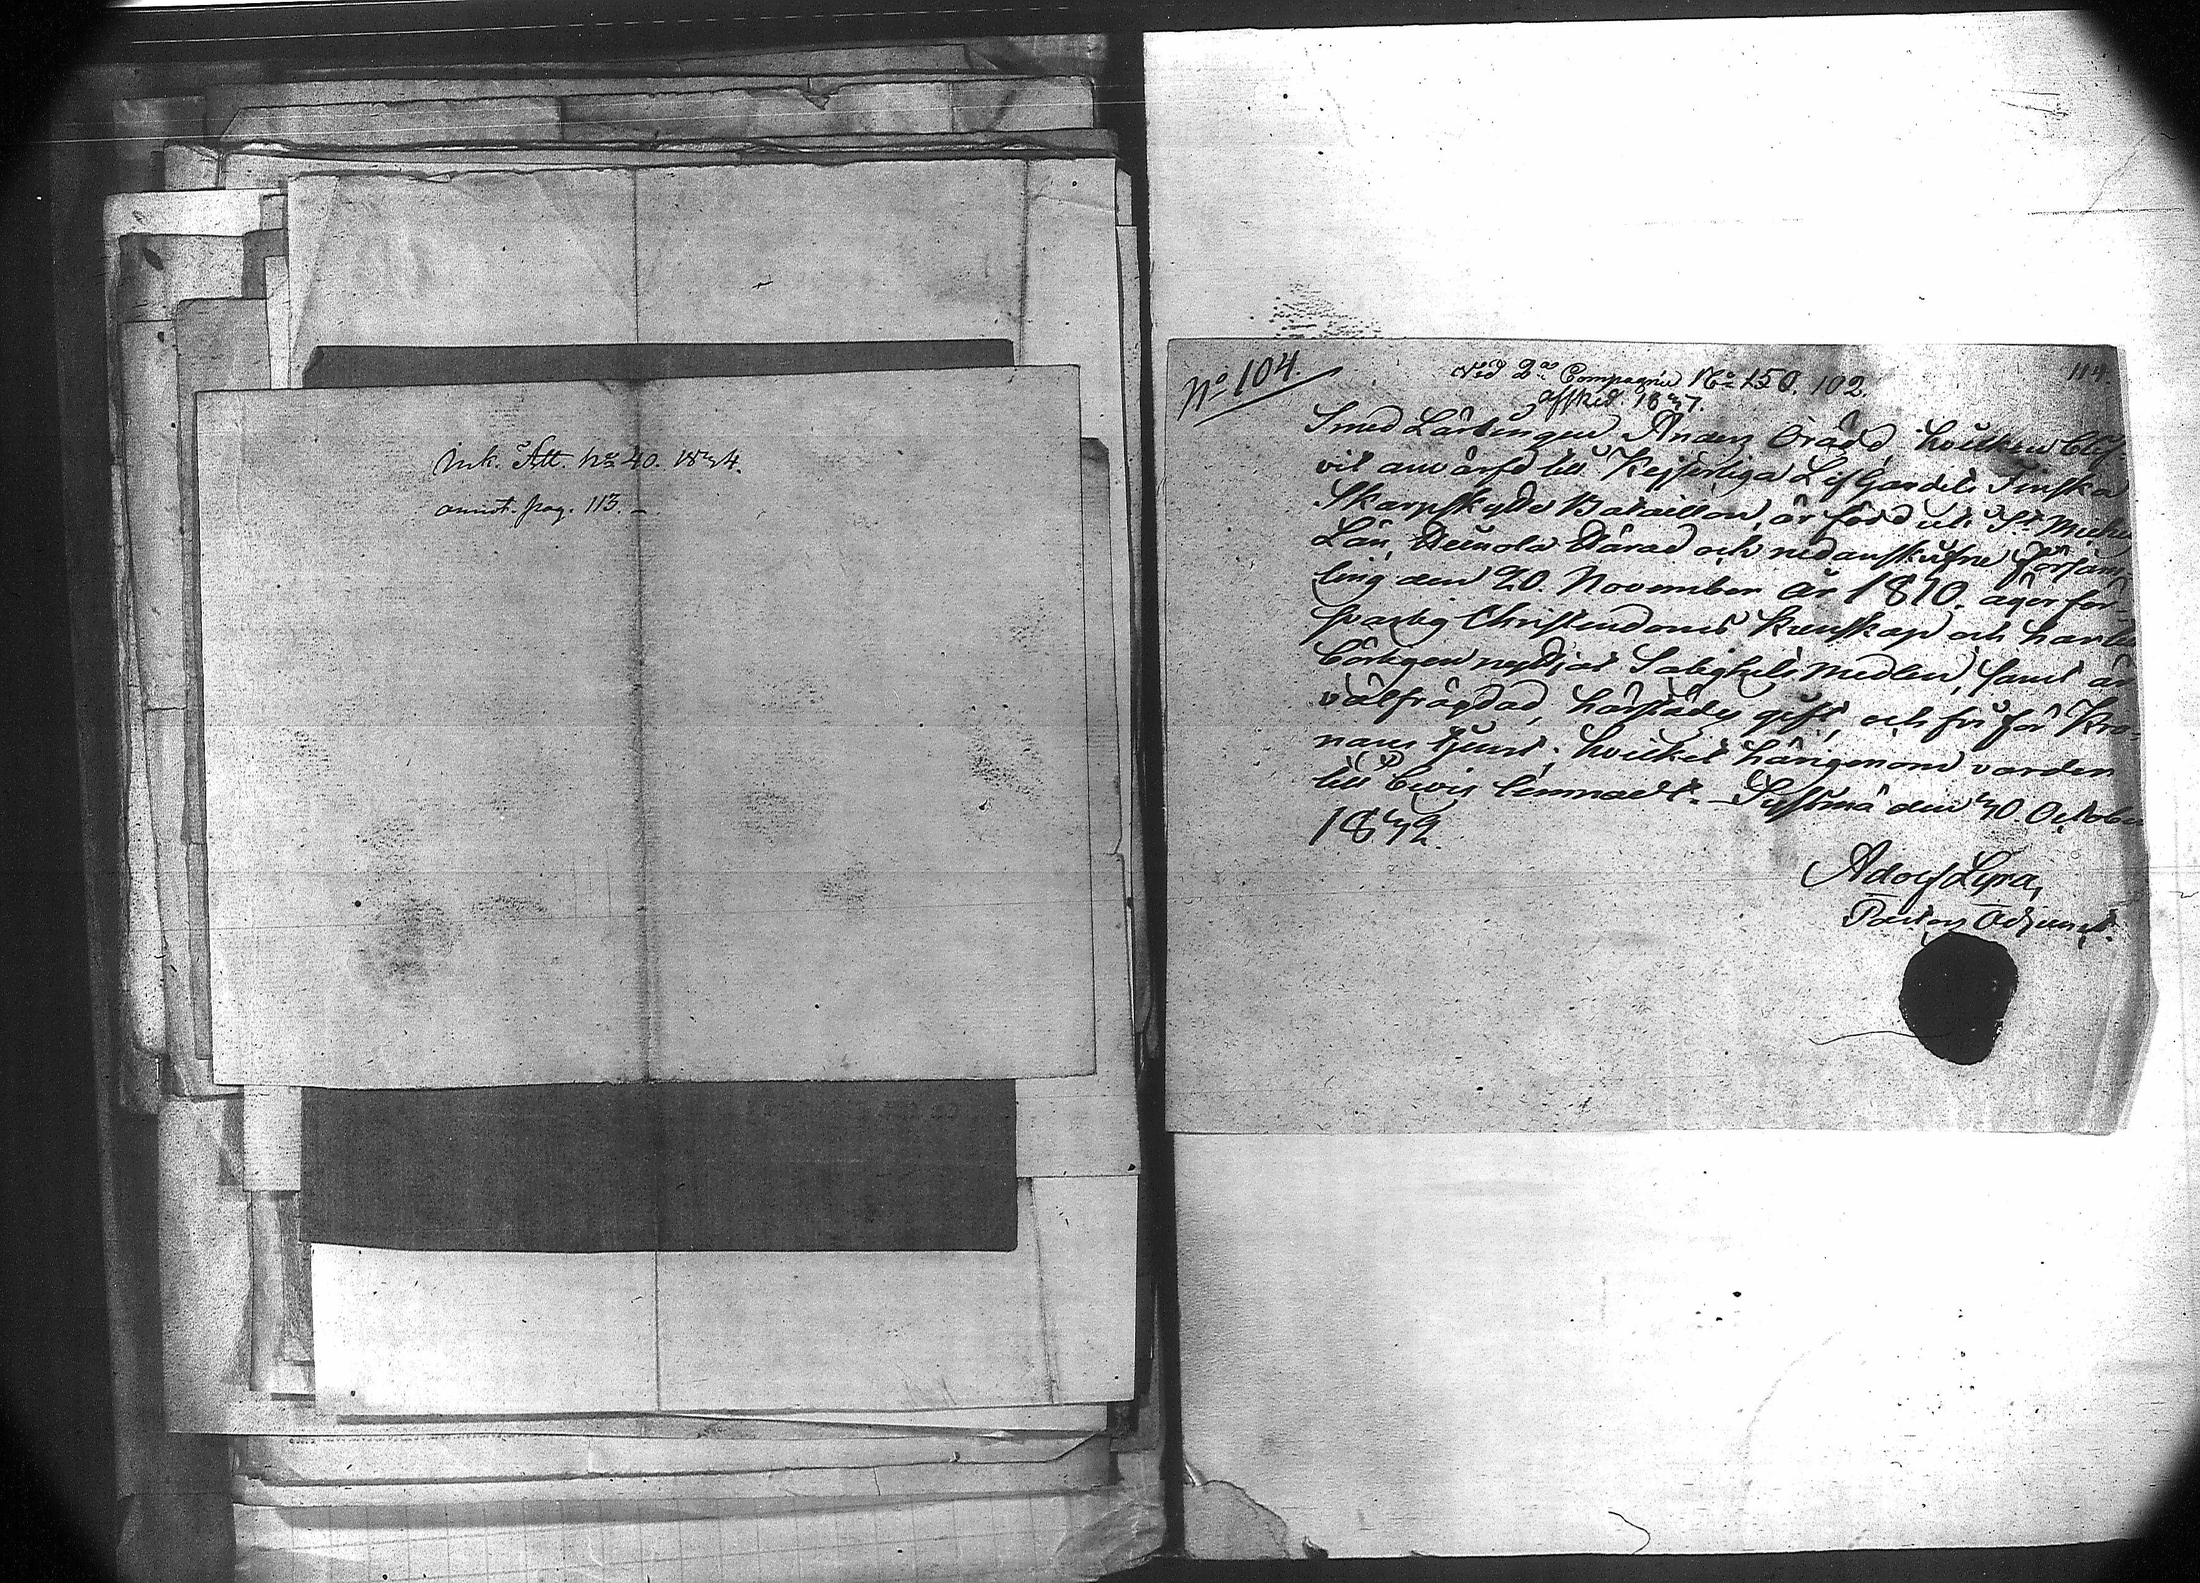 Ink. Att. No 40. 1834.
annot. pag. 113. –
No 104.
Vid 2a Compagnie No 150. 102.
afsked. 1837.
114.
Smed Lärlingen Anders Orädd, hvilken blif-
vit anvärfd till Kejserliga Lif Gardets Finska
Skarpskytte Bataillon, är född uti St. Michels
Län, Heinola Härad och nedanskrifne Försam-
ling den 20. November år 1810. äger för-
svarlig Christendoms kunskap och har be-
hörigen nyttjat Salighets Medlen, samt är
välfrägdad, härstädes gift, och fri för Kro-
nans tjenst; hvilket härigenom varder
till bevis lemnadt. – Sysmä den 30. October
1832.
Adolf Lyra,
Pastors Adjunct.